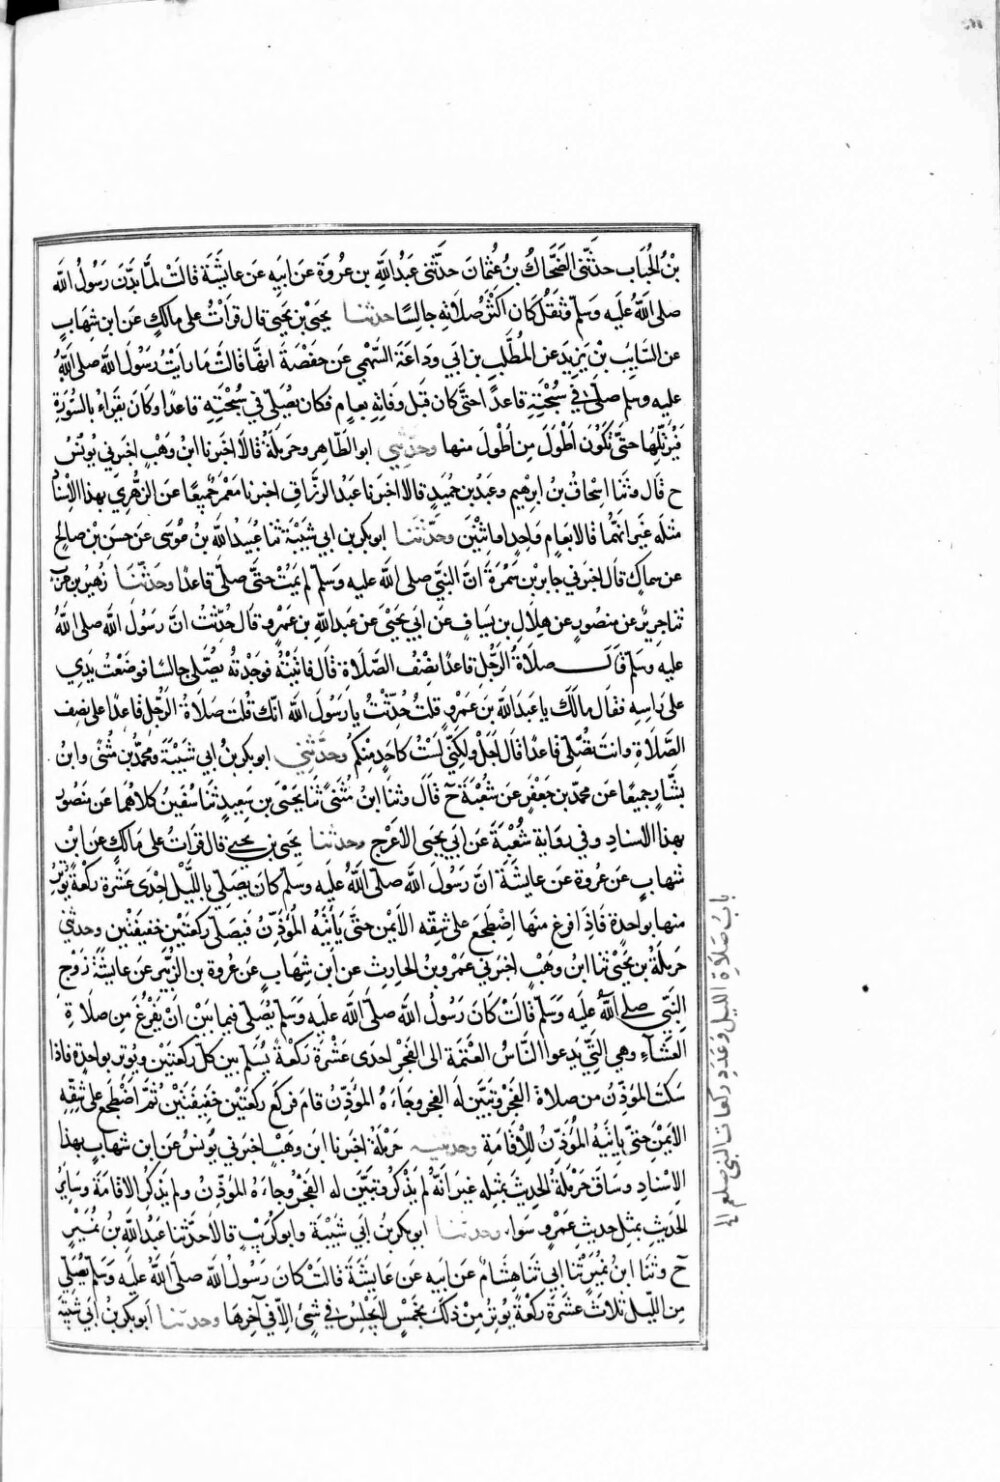 بْنُ الحُبَابِ حدثنى الضَّحَّاكُ بنُ عُثمانَ حدَّثنى عَبدُ اللَّهِ بن عُروَةَ عَن اَبيهِ عَن عَايِشَةَ قالَتْ لمَّا بَدَّنَ رَسُولُ اللَّه
صلى اللَّهُ عَلَيه وَسَلم وثَقُلَ كان اَكْثَرُ صَلاَتِهِ جالِسًا حدثنا يحيَى بن يَحيَى قال قَراَتُ على مالكٍ عَن ابن شِهَابٍ
عن السَّايِبِ بْن يَزِيدَ عن المُطَّلِبِ بن ابي وَدَاعَةَ السَّهْمِي عَن حَفْصَةَ انهَّا قالَتْ مَا رايَتُ رَسُولَ اللَّه صلى اللَّهُ
عليه وسلم صلى في سُبْحَتِهِ قاعدًا حتَّى كان قَبْلَ وَفاتِهِ بِعامٍ فكان يُصَلِّي في سُبْحَتِهِ قاعدًا وَكان يَقراءُ بالسُّورَةِ
فَيُرَتِّلُها حتَّى تَكُونَ اَطْوَلَ مِن اَطْوَلَ منها وحدَّثنى ابو الطَّاهِرِ وحَرمَلَةُ قالاَ اخبَرنا ابنُ وَهْبٍ اخبَرني يُونُسُ
ح قال وثَنا اِسْحَاقُ بنُ ابرهِيم وعَبدُ بن حُمَيدٍ قالا اخبَرنا عَبدُ الرَّزَّاقِ اخبرنا مَعْمَرٌ جَمِيعًا عَن الزُّهْرِيِّ بهذا الاِسْنادِ
مثله غَيرَ انَّهُما قالا بعَامٍ وَاحِدٍ اوِ اثْنَينِ وحَدَّثَنَا ابوبكرِ بن ابي شَيْبَةَ ثنا عُبَيدُ اللَّه بنُ مُوسَى عَن حَسنِ بْن صالحٍ
عن سماكٍ قال اخبرني جابر بن سَمُرَةَ انَّ النبَّى صلى اللَّه عليه وَسَلم لم يَمُتْ حتَّى صلَّى قاعدًا وحَدَّثَنَا زُهيرُ بن حَربٍ
ثنا جريرٌ عن منصُورٍ عن هِلَالِ بن يَسافٍ عن ابي يحَيْى عَن عَبدِ اللَّهِ بن عَمْرٍو قال حُدِّثْتُ انَّ رَسُولَ اللَّه صلى اللَّهُ
عليه وَسَلم قالَ صَلاَةُ الرَّجُلِ قاعدًا نِصْفُ الصَّلاَةِ قالَ فاَتَيْتُهُ فَوَجَدْتُهُ يُصَلِّى جالسًا فوضَعْتُ يَدِي
عَلَى رَاسِهِ فقَال مالَكَ ياعَبدَ اللَّهِ بنَ عَمْرٍو قُلتُ حُدِّثْتُ يا رَسُولَ اللَّه انَّك قُلْتَ صَلَاةُ الرَّجُلِ قاعدًا على نِصفِ
الصَّلَاةِ وانتَ تُصَلّى قاعدًا قال اَجَلْ ولكِنِّي لَسْتُ كاَحَدٍ مِنكُم وحدَّثنى ابوبكرِ بنُ ابي شَيْبَةَ ومُحمَّدُ بن مُثنىَّ وابنُ
بَشَّارٍ جميعًا عَن محمّدِ بن جَعْفَرٍ عَن شُعْبَةَ ح قالَ وثنا ابنُ مُثنىًّ ثنا يَحْيَى بن سَعِيدٍ ثَنا سُفينُ كلاَهُما عَن منصُورٍ
بهذا الاسنادِ وفي رِوَايةِ شُعْبَةَ عَن ابي يحيَى الاَعْرَجِ وحدثنا يحيَى بن يحيى قال قَراتُ على مَالكٍ عَن ابْن
شهابٍ عن عُروةَ عَن عايشَةَ انَّ رَسُولَ اللَّه صلى اللَّهُ عَلَيه وسلَم كان يُصَلّي بالليْل اِحْدَى عَشْرَةَ رَكعَةً يُوتِرُ
منها بِواحدةٍ فاذا فرغَ منهَا اِضْطَجعَ عَلى شِقِّهِ الاَيْمَنِ حتىَّ يَاتيَهُ المُؤَذِّنُ فيصَلّى رَكعتيْن خَفيفَتْين وحدثني
حَرمَلَةُ بن يَحْيى ثنا ابنُ وَهْبٍ اخبَرني عَمرُو بنُ الحَارِثِ عَن ابن شِهَابٍ عَن عُروةَ بن الزُّبَيرِ عَن عايشَةَ زَوْجِ
النَّبِّى صلى اللَّهُ عَلَيه وَسَلّم قالَتْ كَانَ رَسُولُ اللَّه صلى اللَّهُ عَلَيه وَسَلَّم يُصَلّى فيما بيْنَ انْ يَفْرُغَ مِن صَلاةِ
العِشاءِ وهِي التَّي يَدعوا النَّاسُ العَتَمَةَ الى الفَجْرِ احدَى عَشْرَةَ رَكعَةً يُسَلِّم بين كلّ رَكعتَيْن ويُوتِر بواحدَةٍ فاذا
سَكتَ المؤذِّنُ من صلاة الفَجْرِ وتَبَيَّن لَه الفجرُ وجاءَهُ المؤذِّنُ قامَ فركَعَ رَكعَتَيْن خَفِيفَتَيْن ثُمَّ اَضْطَجعَ على شِقِّهِ
الاَيْمَن حتىّ ياتيَهُ المُؤَذّنُ للاِقَامَةِ وحدثنيه حَرْمَلَةُ اخبَرنا ابن وَهْبٍ اخبَرني يُونُسُ عَن ابن شهابٍ بهذا
الاِسْنادِ وسَاقَ حَرْمَلَةُ الحَدِيثَ بمثلِه غيرَ انَّهُ لم يَذْكُر وتَبَيَّن له الفَجْرُ وجاءَهُ المؤذِّنُ ولم يذكُرِ الاِقَامَةَ وسَايِرُ
الحَديثِ بمثلِ حديثِ عَمْرٍو سَواء وحدثنا ابوبكرِ بنُ ابي شَيْبَةَ وابو كُرَيْبٍ قالا حَدَّثنا عَبْدُ اللَّهِ بنُ نُمَيرٍ
ح وثَنا ابنُ نُمَيْرٍ ثنا ابي ثَنا هِشامٌ عَن ابيه عَن عَايشَةَ قالَتْ كانَ رَسُولُ اللَّه صلى اللَّهُ عَلَيه وَسَلم يُصَلّي
مِن اللَّيل ثلاثَ عَشْرَةَ رَكعةً يُوتِرُ مِنْ ذلكَ بخَمْسٍ لا يَجْلِسُ في شيْءٍ اِلاّ في آخِرِهَا وحدثنا ابوبكرِ بنُ ابي شَيْبَة
بابُ صَلاَةِ الليل وعَدَدِ ركعات النبي صلعم